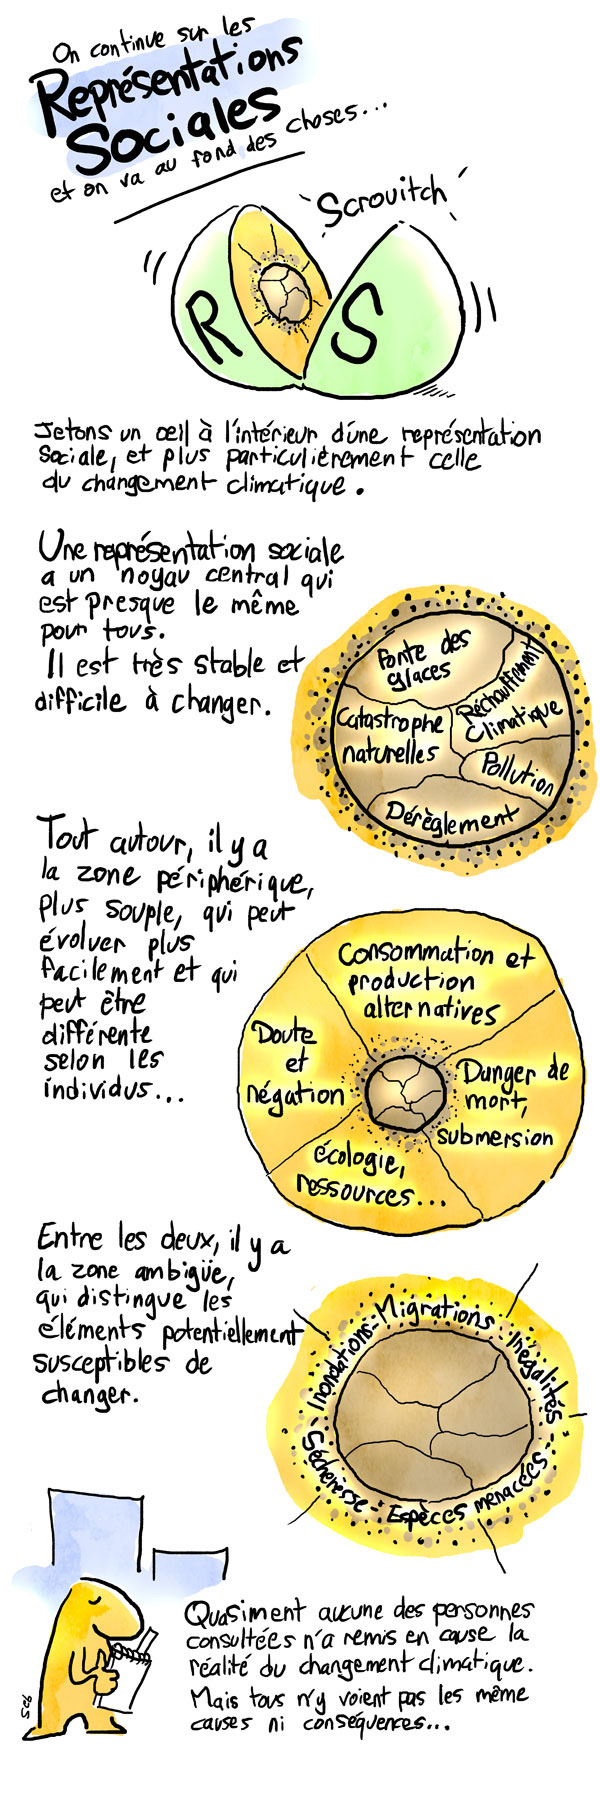 On continue sur les
Représentations
Sociales
et on va au fond des choses...
Scrouitch
R S
Jetons un œil à l'intérieur d'une représentation
sociale, et plus particulièrement celle
du changement climatique.
Une représentation sociale
a un noyau central qui
est presque le même
pour tous.
Il est très stable et
difficile à changer.
Fonte des
glaces
Réchauffement
climatique
Catastrophe
naturelles
Pollution
Dérèglement
Tout autour, il y a
la zone périphérique,
plus souple, qui peut
évoluer plus
facilement et qui
peut être
différente
selon les
individus...
Consommation et
production
alternatives
Doute
et
négation
Danger de
mort,
submersion
écologie,
ressources...
Entre les deux, il y a
la zone ambigüe,
qui distingue les
éléments potentiellement
susceptibles de
changer.
Inondations - Migrations - Inégalités -
Sécheresse - Espèces menacées -
Quasiment aucune des personnes
consultées n'a remis en cause la
réalité du changement climatique.
Mais tous n'y voient pas les même
causes ni conséquences...